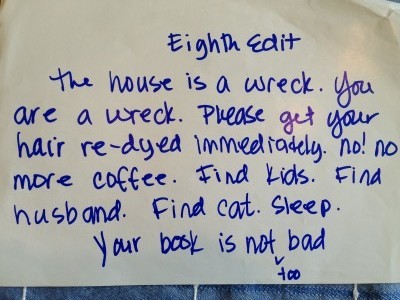 Eighth Edit
The house is a wreck. You
are a wreck. Please get your
hair re-dyed immediately. No! no
more coffee. Find kids. Find
husband. Find cat. Sleep.
Your book is not bad
too